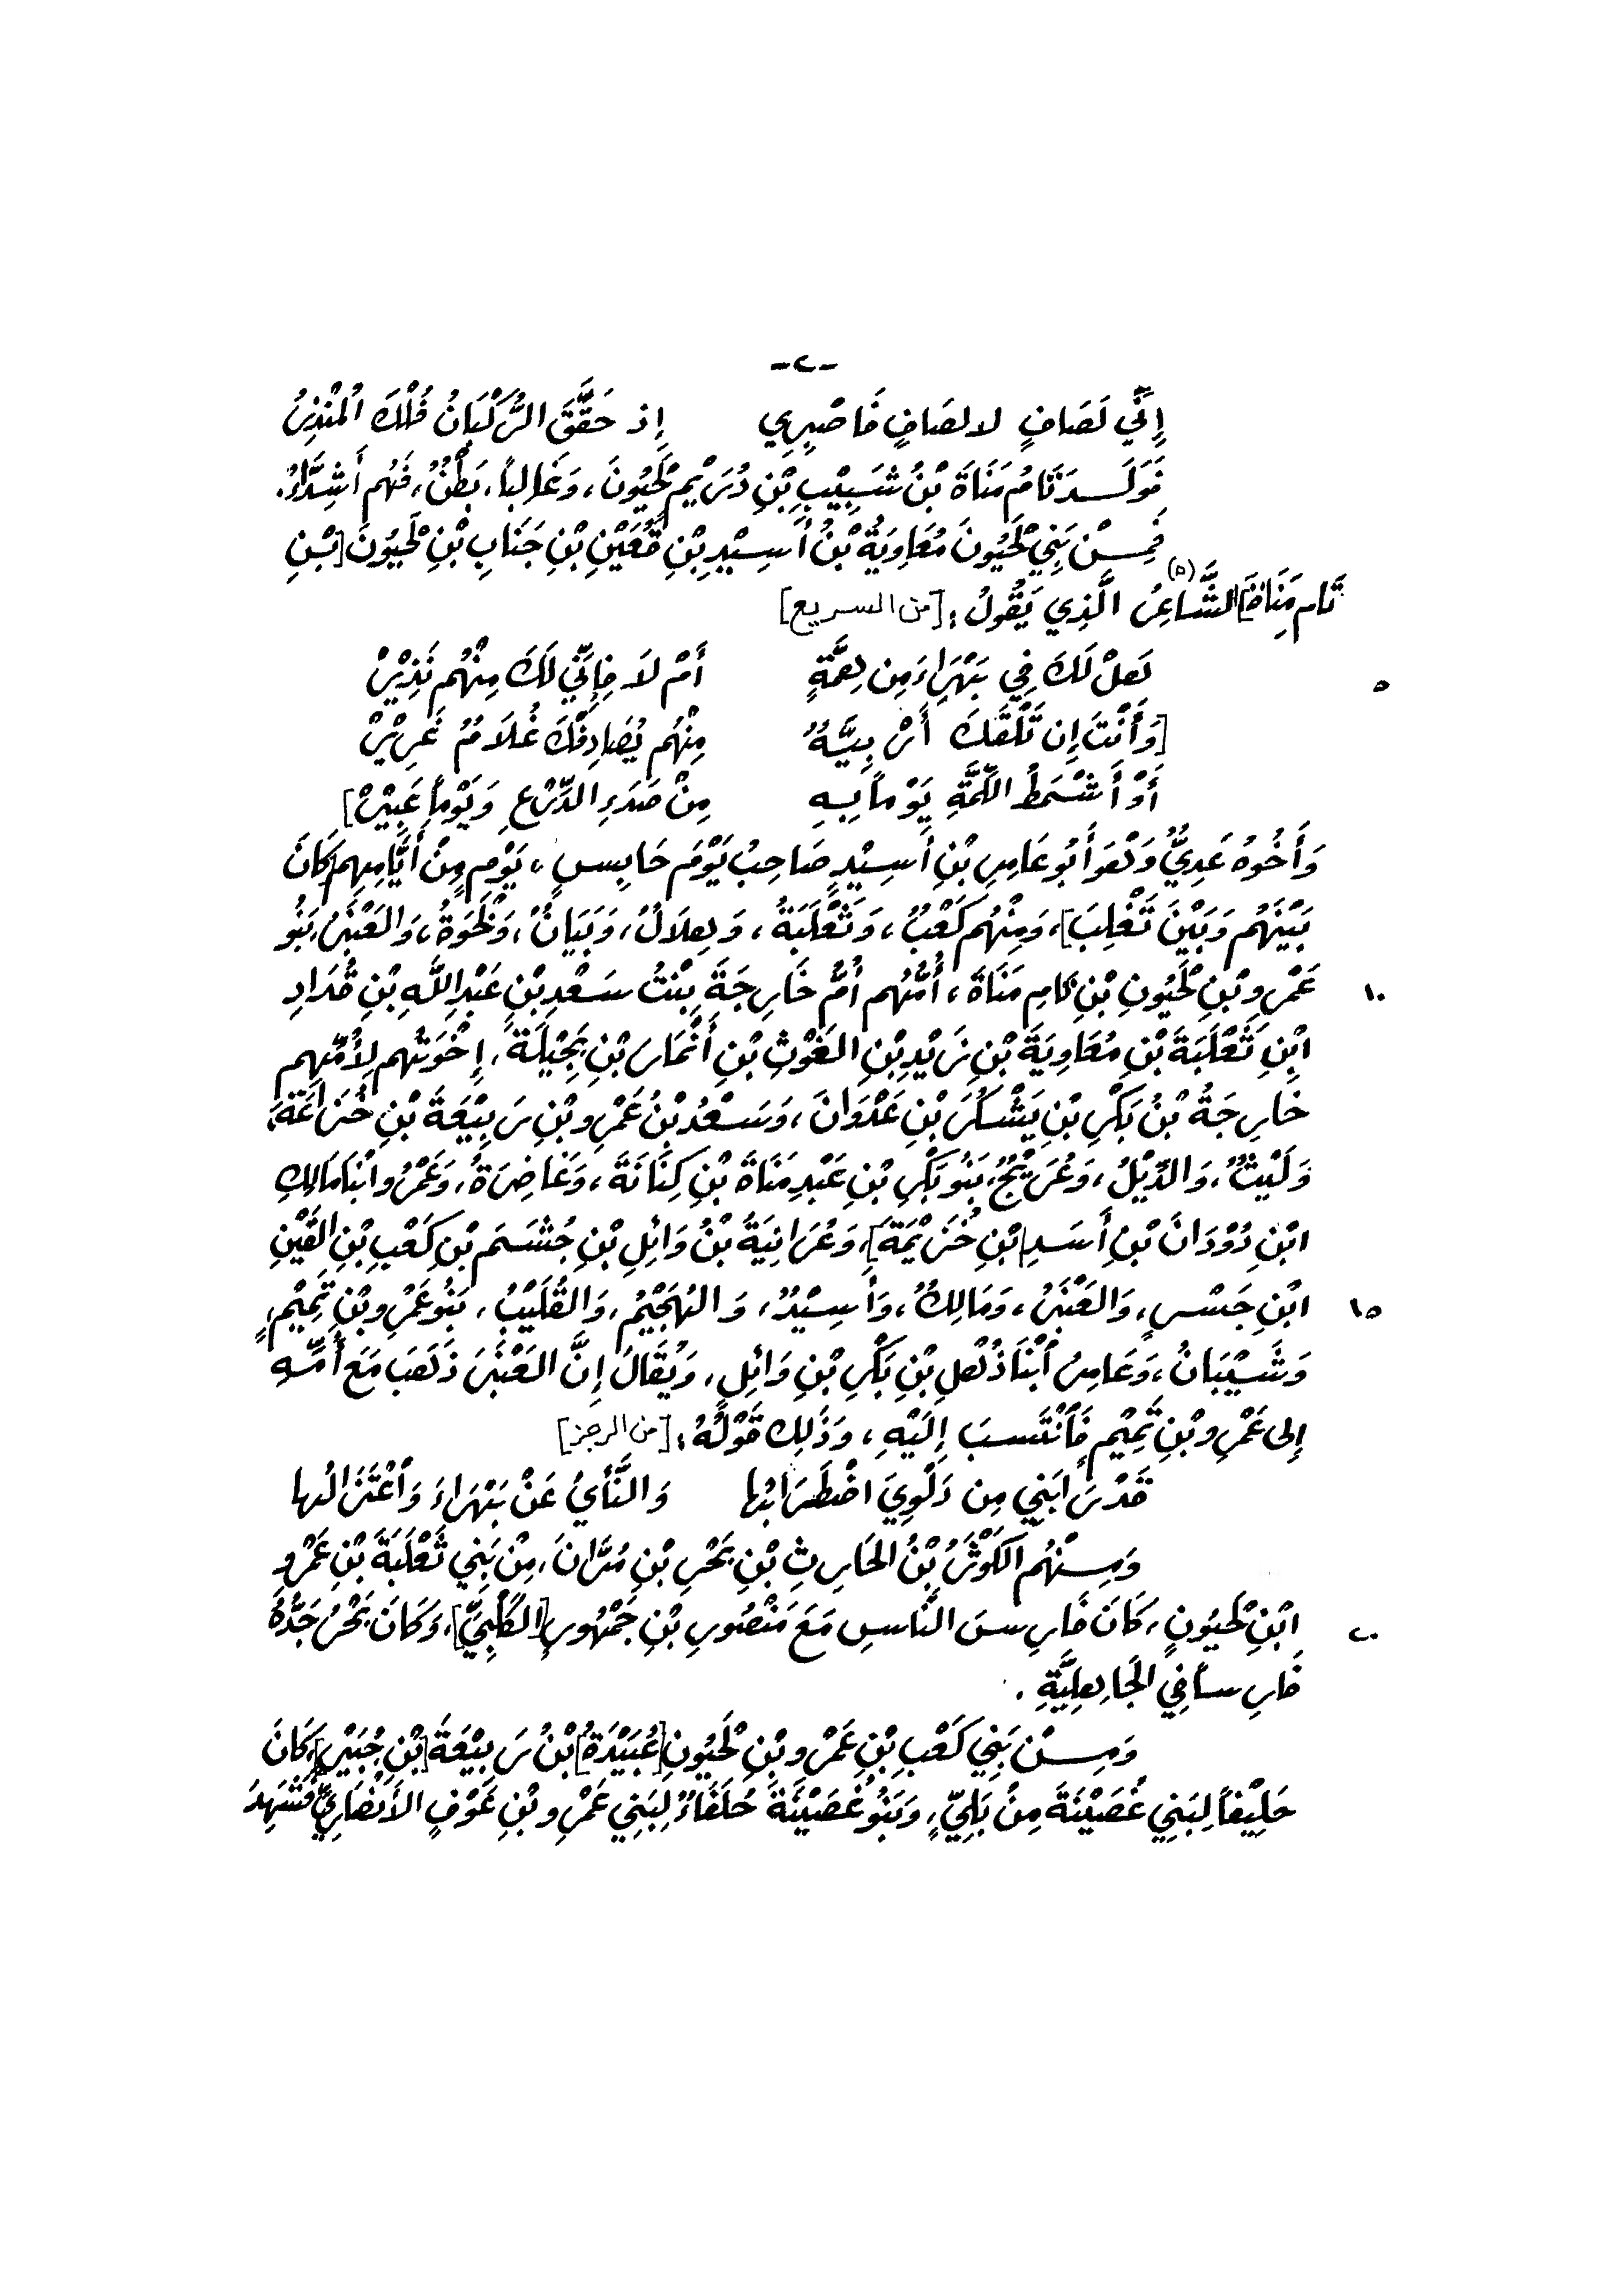 -٢-
إِنِّي لَصَافٍ لا لصَافٍ فَاصْبِرِي إِذ حَقَّقَ الرُّكْبَانُ هُلْكَ المُنْذِرُ
فَوَلَـدَ تَامُ مَنَاةَ بْنُ شَبِيْبِ بْنِ دُرَيْمٍ هْيُونَ، وَغَالِباً، بَطْنٌ، فَهُم أَشِدَّاءُ.
فَمِـنْ بَنِي هْيُونَ مُعَاوِيَةُ بْنُ أَسِيْدِ بْنِ قُعَيْنِ بْنِ جَنَابِ بْنِ هْيُونَ [بْنِ
تَامِ مَنَاةَ] الشَّاعِرُ (٥) الَّذِي يَقُولُ: [من السريع]
لَعلْ لَكَ فِي بَهْرَاءَ مِن نِعمَّةٍ أَمْ لاَ فَإِنِّي لَكَ مِنْهُم نَذِيْرْ
٥
[وَأَنْتَ إِن تَلْقَكَ أَرْبِيَّةٌ مِنْهُم يُصَادِفْكَ غُلاَمٌ غَرِيْرْ
أَوْ أَشْمَطُ اللِّمَّةِ يَوْماً بِهِ مِنْ صَدَءِ الدِّرْعِ وَيَوْماً عَبِيْرْ]
وَأَخُوهُ عَدِيٌّ وَهوَ أَبُو عَامِرِ بْنِ أَسِيْدٍ صَاحِبُ يَوْمَ حَابِسٍ، يَوْمٍ مِنْ أَيَّامِهِم كَانَ
بَيْنَهُم وَبَيْنَ تَغْلِبَ]، وَمِنْهُم كَعْبٌ، وَثَعْلَبَةُ، وَهِلاَلٌ، وَبَيَانٌ، وَلَخْوَةُ، وَالعَنْبَرُ، بَنُو
عَمْرِو بْنِ هْيُونِ بْنِ تَامِ مَنَاةَ، أُمُّهُم أُمُّ خَارِجَةَ بِنْتُ سَعْدِ بْنِ عَبْدِ اللَّهِ بْنِ قُدَادِ
١٠
ابْنِ ثَعْلَبَةَ بْنِ مُعَاوِيَةَ بْنِ زَيْدِ بْنِ الغَوْثِ بْنِ أَنْمَارَ بْنِ بَجِيْلَةَ، إِخْوَتُهُم لِأُمِّهِم
خَارِجَةُ بْنُ بَكْرِ بْنِ يَشْكُرَ بْنِ عَدْوَانَ، وَسَعْدُ بْنُ عَمْرِو بْنِ رَبِيْعَةَ بْنِ خُزَاعَةَ،
وَلَيْثٌ، وَالدِّيْلُ، وَعُرَيْجٌ، بَنُو بَكْرِ بْنِ عَبْدِ مَنَاةَ بْنِ كِنَانَةَ، وَغَاضِرَةُ، وَعَمْرُو ابْنَا مَالِكِ
ابْنِ دُوْدَانَ بْنِ أَسَدِ [بْنِ خُزَيْمَةَ]، وَعُرَانِيَةُ بْنُ وَائِلِ بْنِ جُشَـمَ بْنِ كَعْبِ بْنِ القَيْنِ
ابْنِ جَسْـرٍ، وَالعَنْبَرُ، وَمَالِكٌ، وَأُسَيْدٌ، وَالهُجَيْمُ، وَالقُلَيْبُ، بَنُو عَمْرِو بْنِ تَمِيْمٍ،
١٥
وَشَيْبَانُ، وَعَامِرُ ابْنَا ذُهلِ بْنِ بَكْرِ بْنِ وَائِلٍ، وَيُقَالُ إِنَّ العَنْبَرَ ذَهَبَ مَعَ أُمِّـهِ
إِلى عَمْرِو بْنِ تَمِيْمٍ فَانْتَسبَ إِلَيْهِ، وَذَلِك قَوْلُهُ: [من الرجز]
قَدْ رَابَنِي مِن دَلْوِيَ اضْطِرَابُها وَالنَّأْيُ عَنْ بَهْرَاءَ وَاعْتِزَالُها
وَمِـنْهُم الكَوْثَرُ بْنُ الحَارِثِ بْنِ بَحْرِ بْنِ مُرَّانَ، مِنْ بَنِي ثَعْلَبَةَ بْنِ عَمْرِو
ابْنِ هْيُونٍ، كَانَ فَارِسَ النَّاسِ مَعَ مَنْصُورِ بْنِ جَمْهُورٍ [الكَلْبِيِّ]، وَكَانَ بَحْرُ جَدُّهُ
٢٠
فَارِسـاً فِي الجَاهِلِيَّةِ.
وَمِـنْ بَنِي كَعْبِ بْنِ عَمْرِو بْنِ هْيُونِ [عُبَيْدَةُ] بْنُ رَبِيْعَةَ [بْنِ جُبَيْرٍ]، كَانَ
حَلِيْفاً لِبَنِي غُصَيْنَةَ مِنْ بَلِيٍّ، وَبَنُو غُصَيْنَةَ حُلَفَاءُ لِبَنِي عَمْرِو بْنِ عَوْفٍ الأَنْصَارِيِّ، شَهِدَ